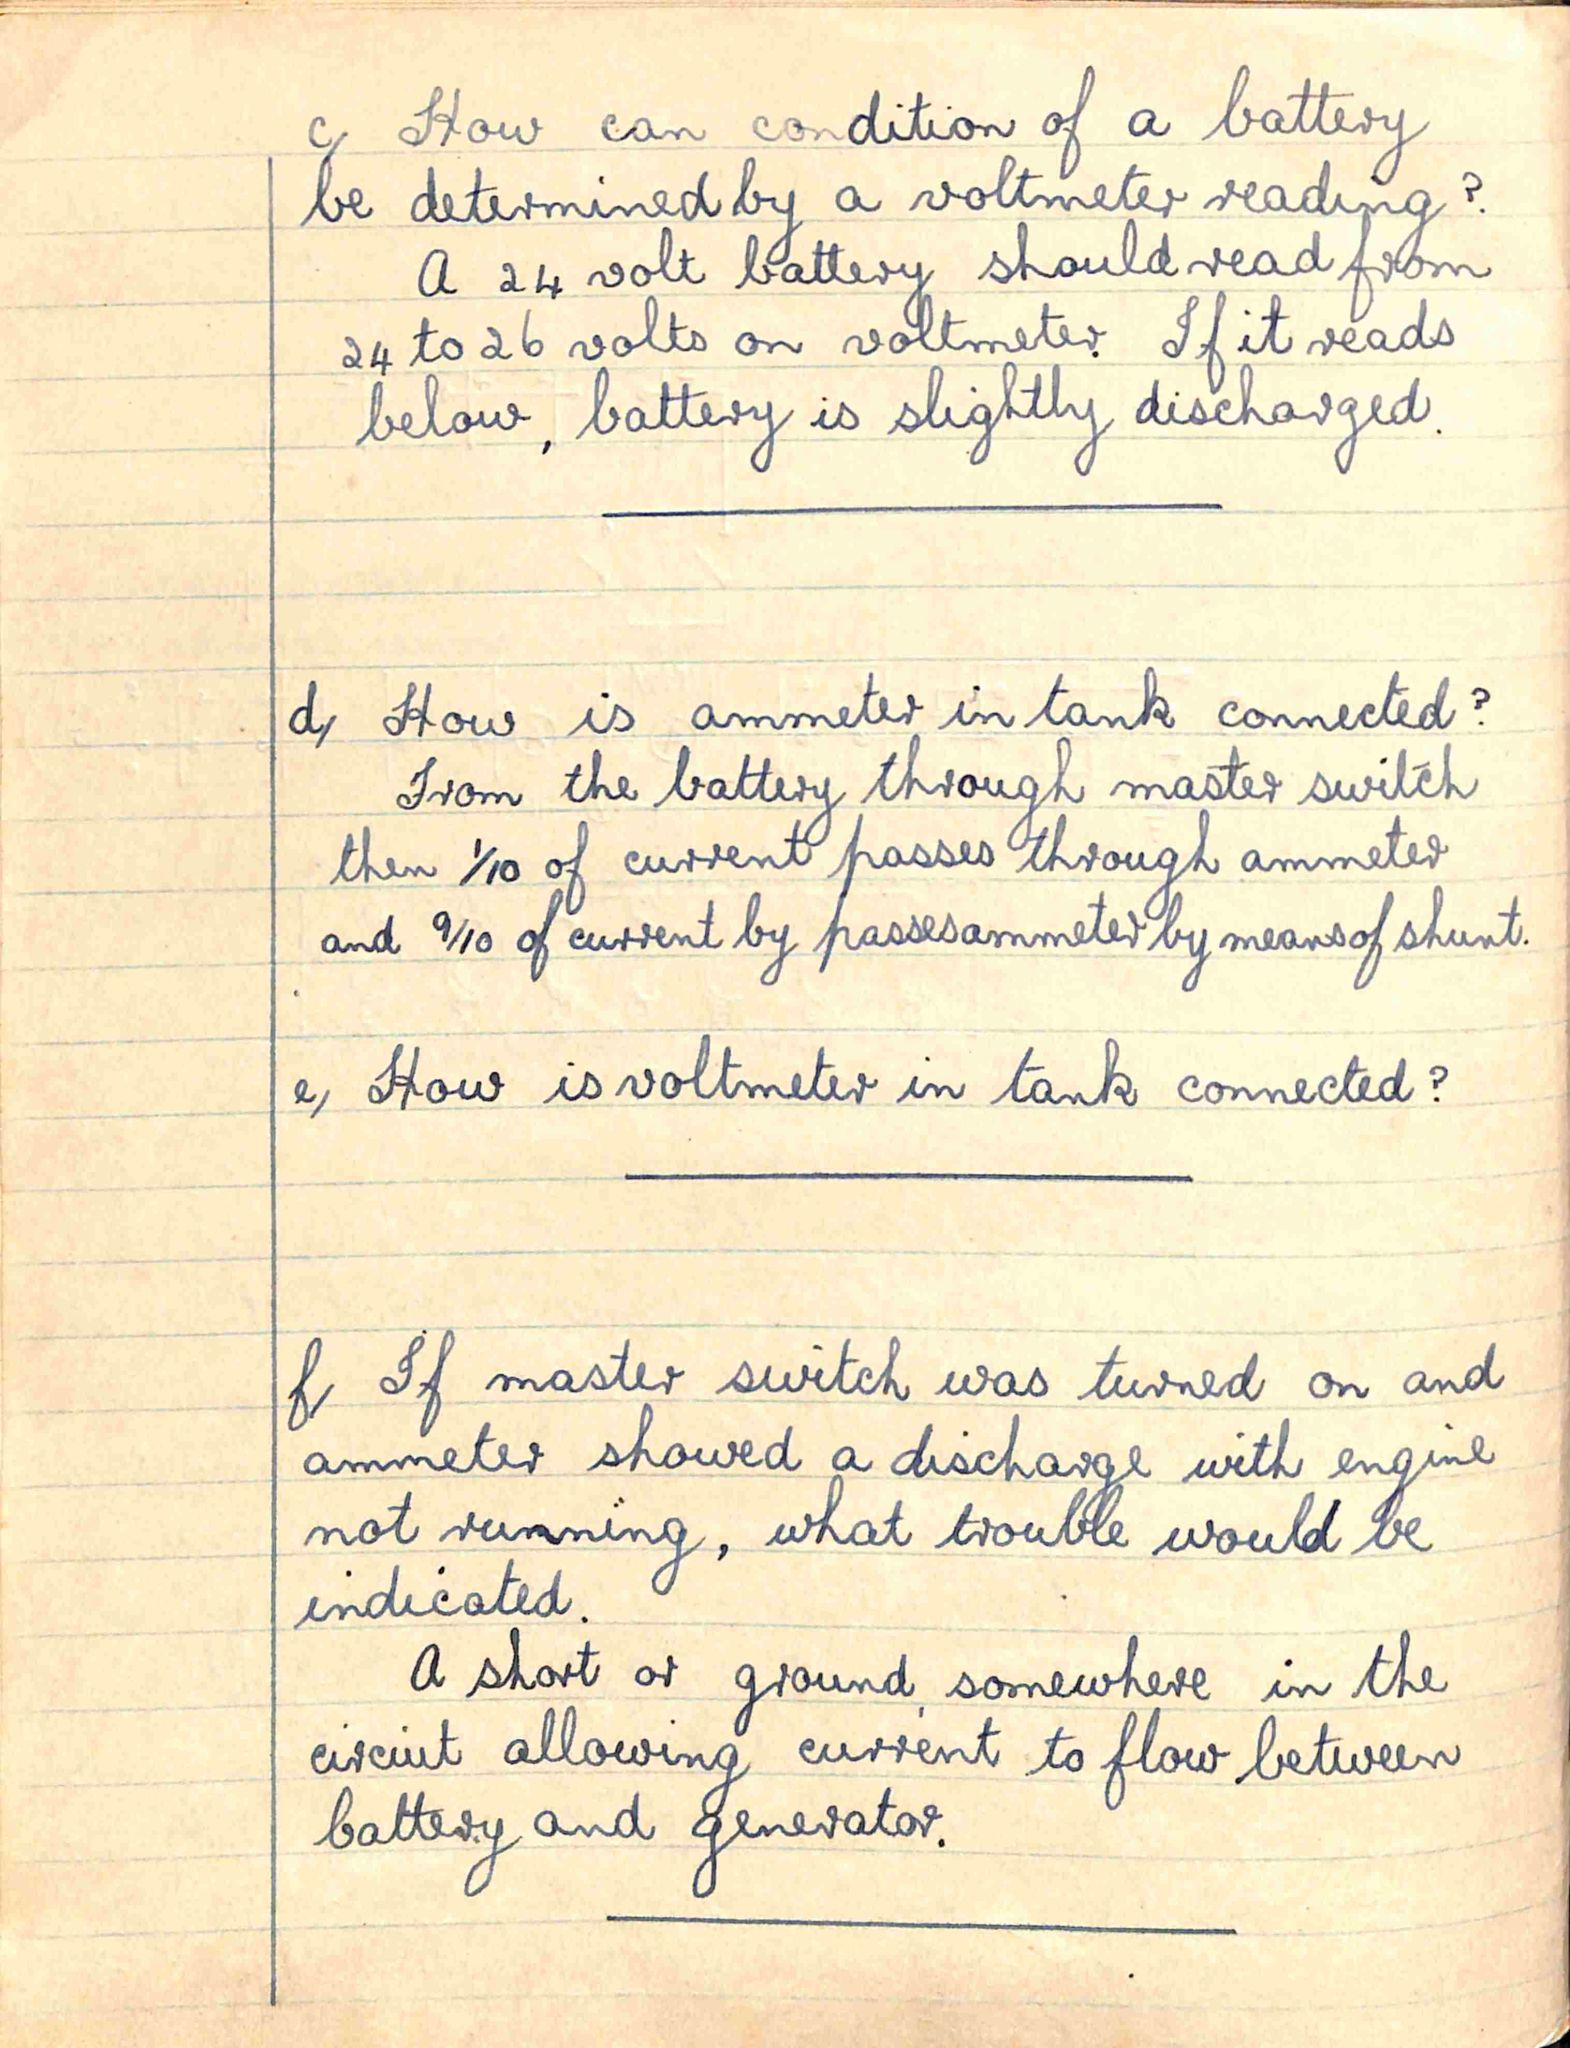 c, How can condition of a battery
be determined by a voltmeter reading?
A 24 volt battery should read from
24 to 26 volts on voltmeter. If it reads
below, battery is slightly discharged.
d, How is ammeter in tank connected?
From the battery through master switch
then 1/10 of current passes through ammeter
and 9/10 of current by passes ammeter by means of shunt.
e, How is voltmeter in tank connected?
f, If master switch was turned on and
ammeter showed a discharge with engine
not running, what trouble would be
indicated.
A short or ground, somewhere in the
circiut allowing current to flow between
battery and generator.